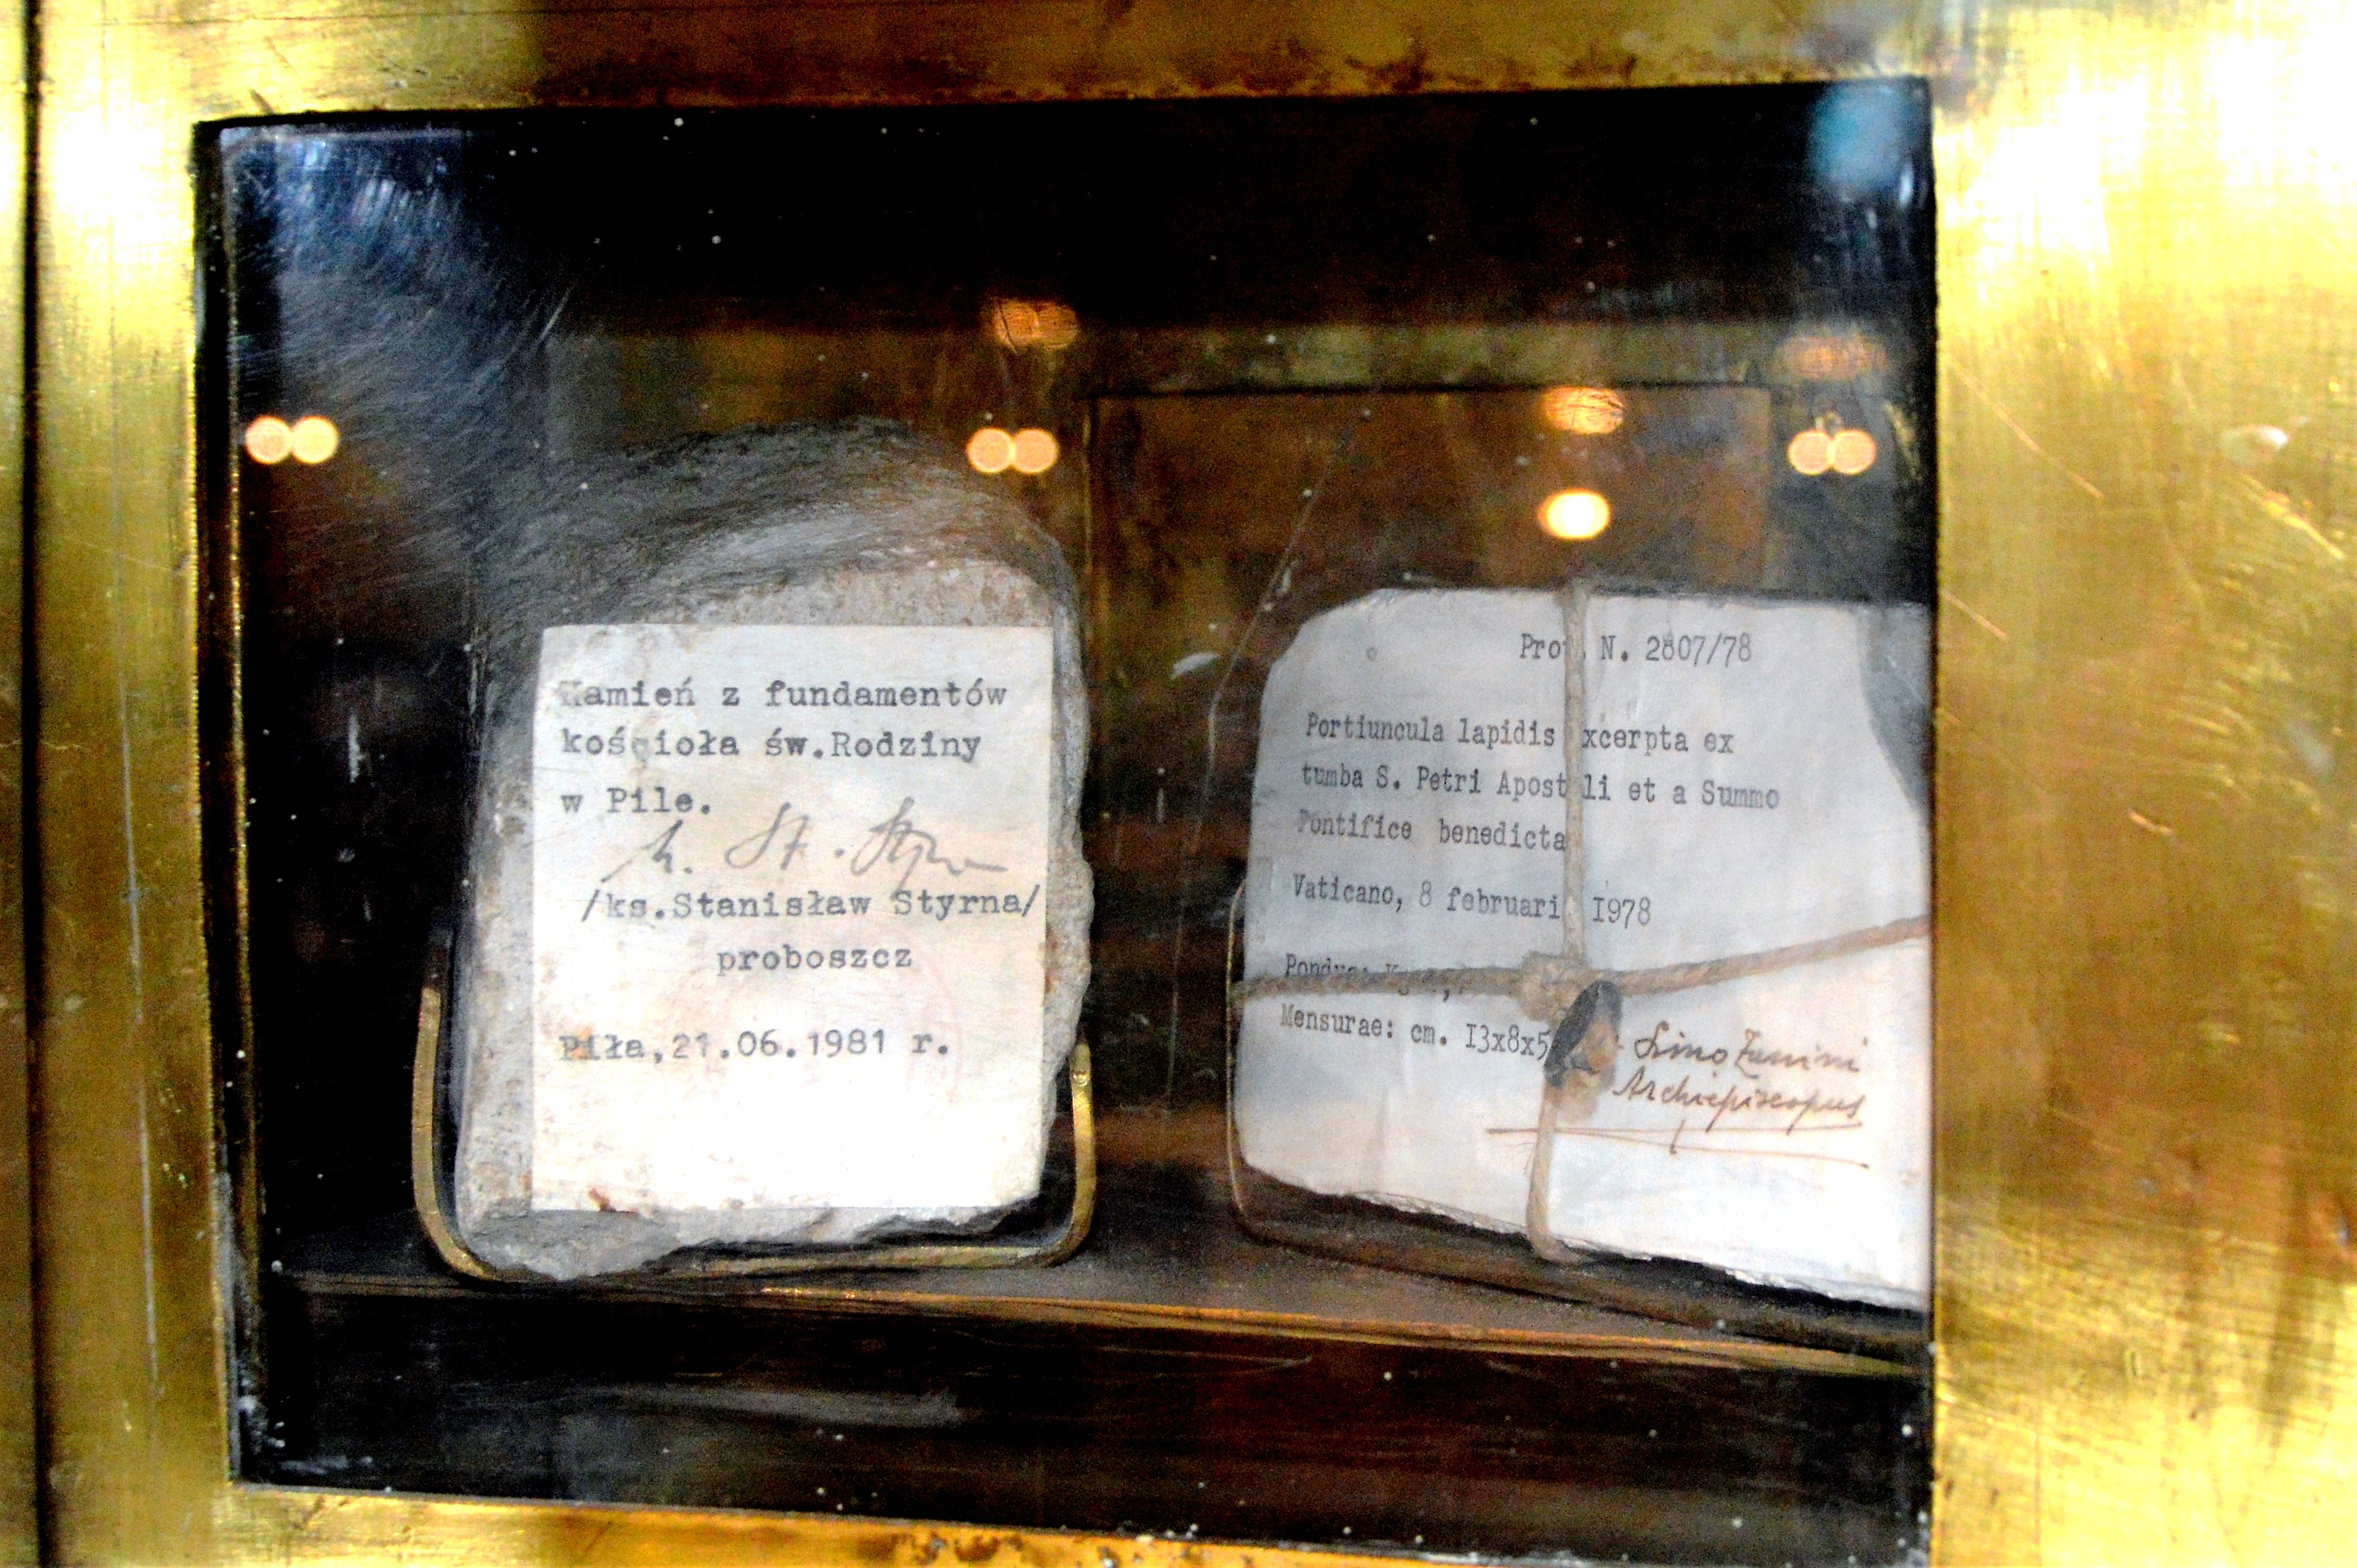 Kamień z fundamentów
kościoła św.Rodziny
w Pile.
/ks.Stanisław Styrna/
proboszcz
Piła,21.06.1981 r.
Prot. N. 2807/78
Portiuncula lapidis excerpta ex
tumba S. Petri Apostoli et a Summo
Pontifice benedicta
Vaticano, 8 februarii 1978
Pondus: Kg.
Mensurae: cm. I3x8x5
Lino Zanini
Archiepiscopus